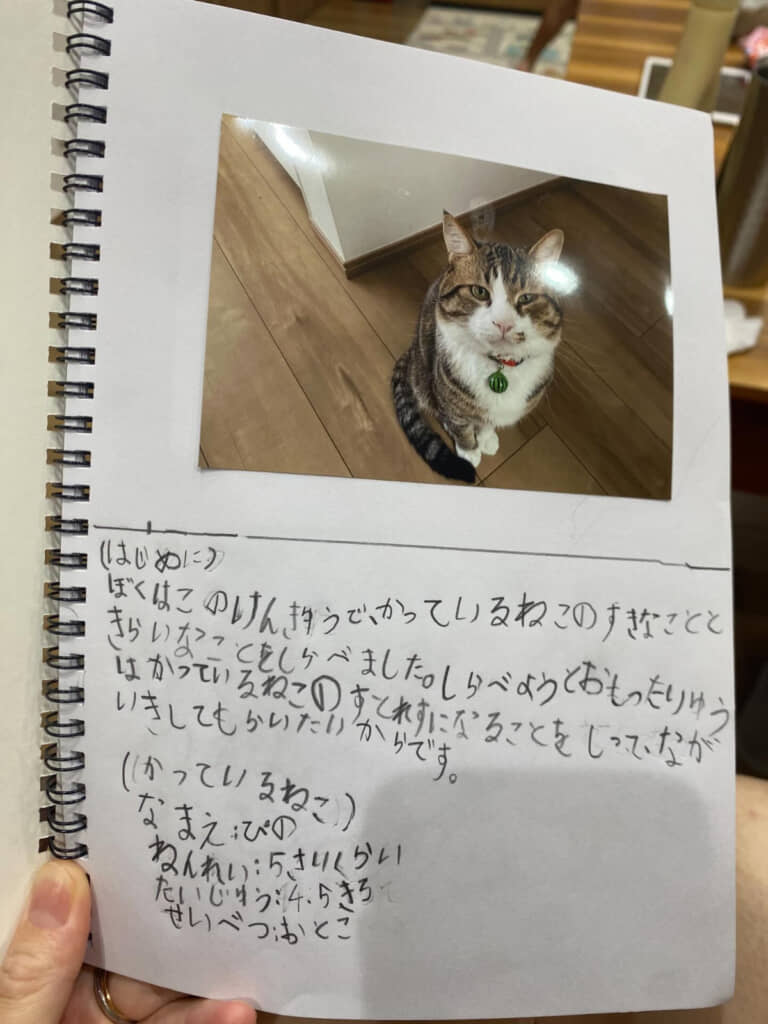 (はじめに)
ぼくはこのけんきゅうで、かっているねこのすきなことと
きらいなことをしらべました。しらべようとおもったりゆう
はかっているねこのすとれすになることをしって、なが
いきしてもらいたいからです。
(かっているねこ)
なまえ:ぴの
ねんれい:5さいくらい
たいじゅう:4.5きろ
せいべつ:おとこ